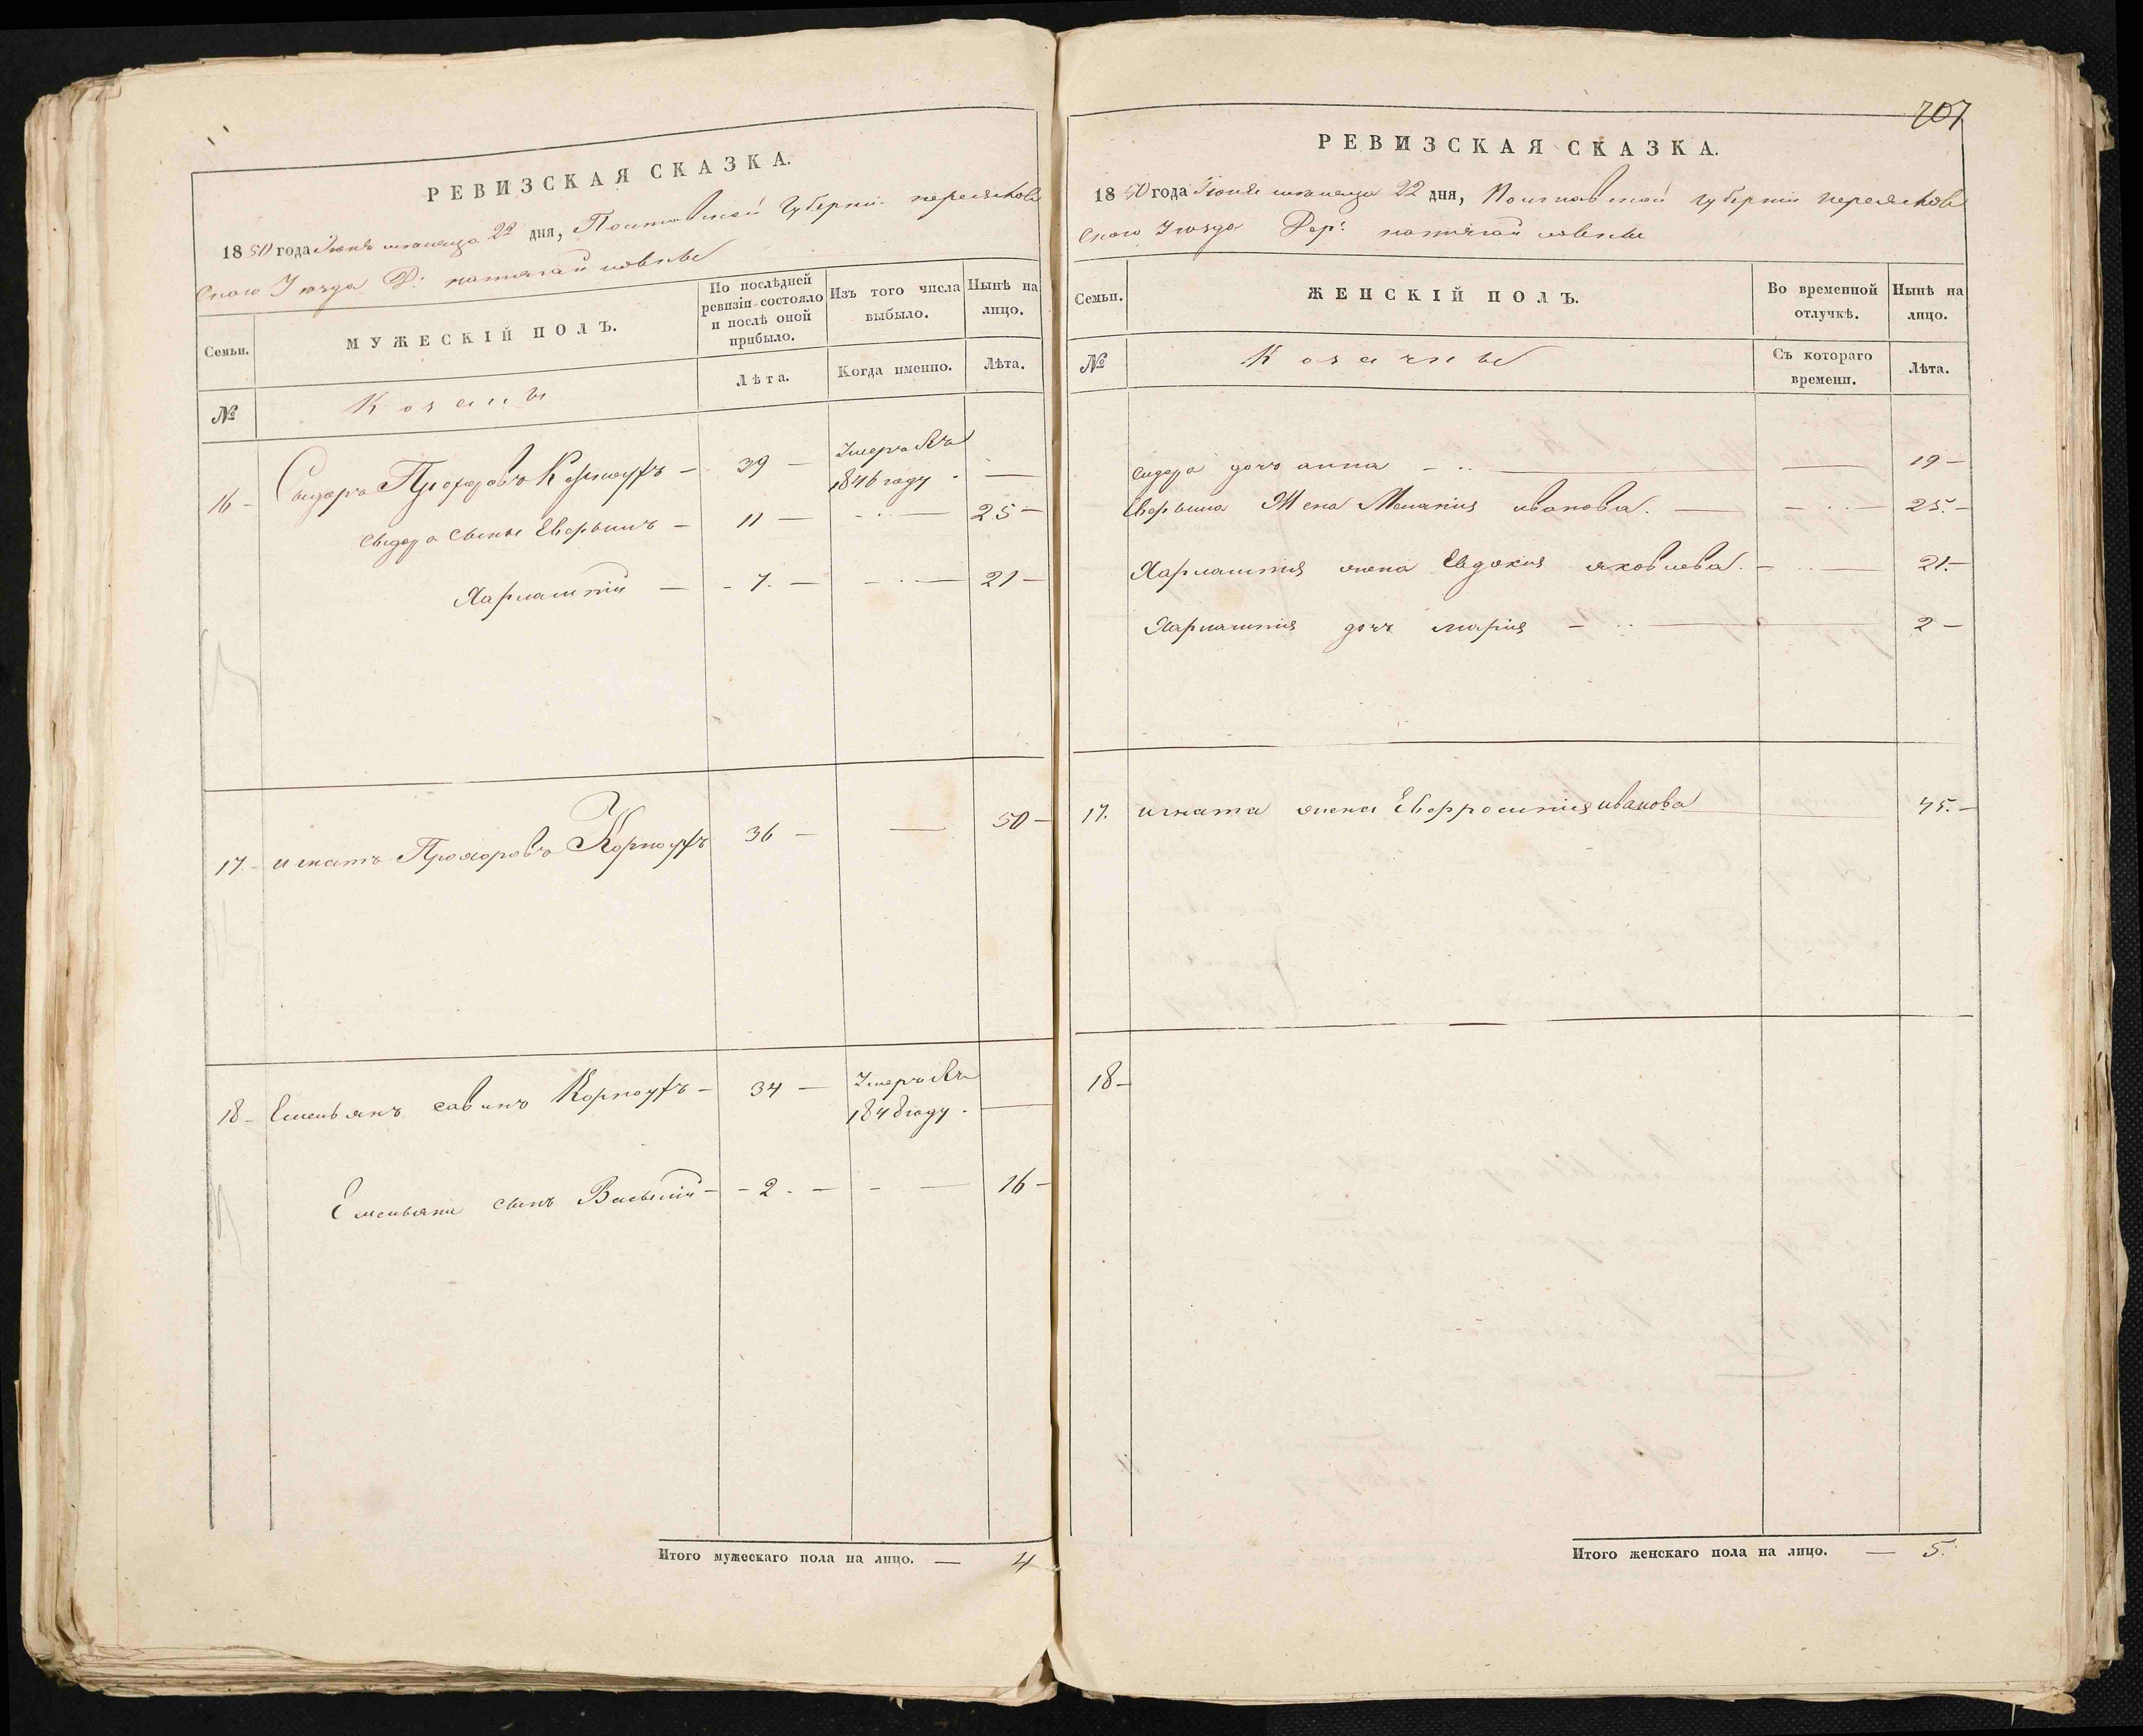 РЕВИЗСКАЯ СКАЗКА.
1850 года Іюня месяца 22 дня, Полтавской Губерніи переяслов
ского Уезда Д:
Семьи.
МУЖЕСКІЙ ПОЛЪ.
По послѣдней ревизіи состояло и послѣ оной прибыло.
Изъ того числа выбыло.
Нынѣ на лицо.
№
Козаки
Лѣта.
Когда именно.
Лѣта.
16 - Сидоръ Прохоровъ — 39 — Умеръ Въ
1846 году . —
Сидора сынъ — 11 — 25 —
Харлампій — 7. — 21 —
17 - игнатъ Прохоровъ 36 — — 50 —
18 - Емельянъ савинъ — 34 — Умеръ Въ
1848 году . —
Емельяна сынъ Василій — 2 . — 16 —
Итого мужескаго пола на лицо. — 4
707
РЕВИЗСКАЯ СКАЗКА.
1850 года Іюня месяца 22 дня, Полтавской губерніи переяслов
ского Уезда Дер:
Семьи.
ЖЕНСКІЙ ПОЛЪ.
Во временной отлучкѣ.
Нынѣ на лицо.
№
Козачки
Съ котораго времени.
Лѣта.
Сидора дочъ анна — 19 —
Жена Меланія иванова. — 25. —
Харлампія жена Евдокія яковлева. — 21. —
Харлампія дочъ марія — 2 —
17. игната жена иванова 45. —
18 -
Итого женскаго пола на лицо. — 5.